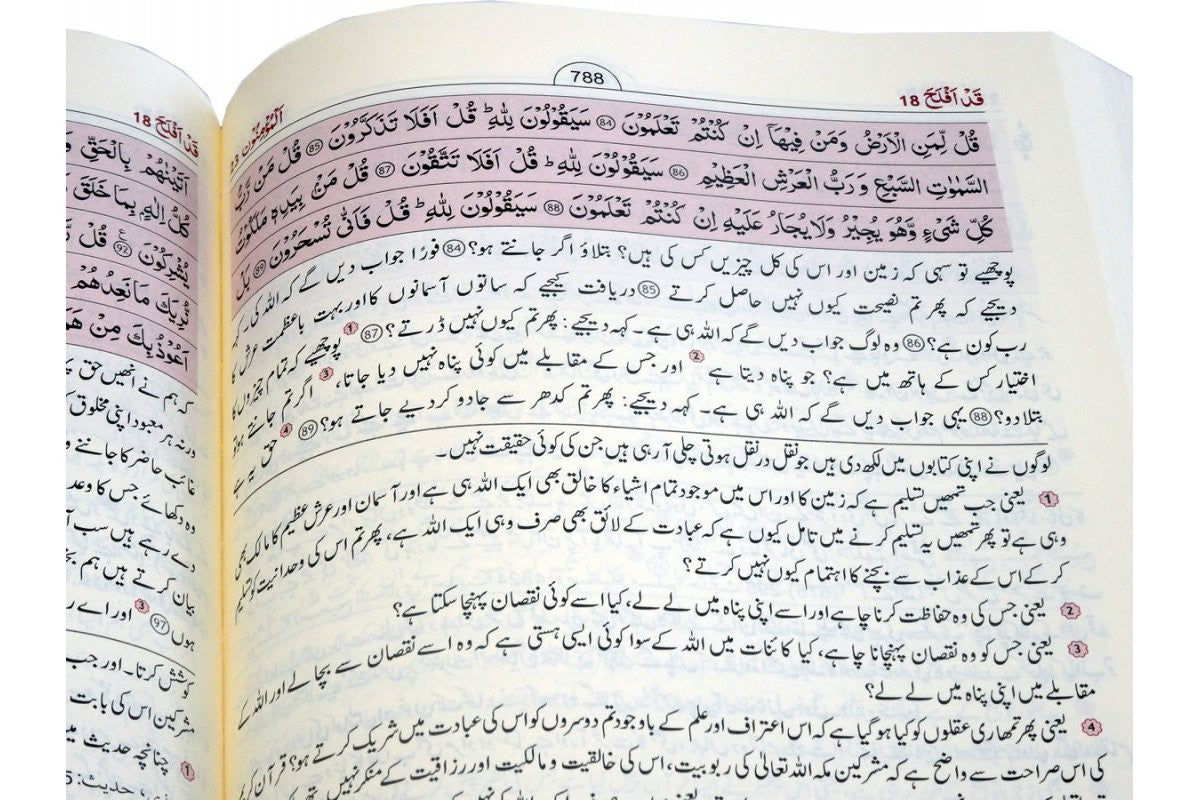 788
قَدْ اَفْلَحَ 18
اَلْمُؤْمِنُوْن 23
قُلْ لِّمَنِ الْاَرْضُ وَمَنْ فِيْهَآ اِنْ كُنْتُمْ تَعْلَمُوْنَ 84 سَيَقُوْلُوْنَ لِلّٰهِ ؕ قُلْ اَفَلَا تَذَكَّرُوْنَ 85 قُلْ مَنْ رَّبُّ
السَّمٰوٰتِ السَّبْعِ وَرَبُّ الْعَرْشِ الْعَظِيْمِ 86 سَيَقُوْلُوْنَ لِلّٰهِ ؕ قُلْ اَفَلَا تَتَّقُوْنَ 87 قُلْ مَنْۢ بِيَدِهٖ مَلَكُوْتُ
كُلِّ شَيْءٍ وَّهُوَ يُجِيْرُ وَلَا يُجَارُ عَلَيْهِ اِنْ كُنْتُمْ تَعْلَمُوْنَ 88 سَيَقُوْلُوْنَ لِلّٰهِ ؕ قُلْ فَاَنّٰى تُسْحَرُوْنَ 89 بَلْ
پوچھیے تو سہی کہ زمین اور اس کی کل چیزیں کس کی ہیں؟ بتلاؤ اگر جانتے ہو؟ 84 فورًا جواب دیں گے کہ اللہ کی۔ کہہ
دیجیے کہ پھر تم نصیحت کیوں نہیں حاصل کرتے 85 دریافت کیجیے کہ ساتوں آسمانوں کا اور بہت باعظمت عرش کا
رب کون ہے؟ 86 وہ لوگ جواب دیں گے کہ اللہ ہی ہے۔ کہہ دیجیے: پھر تم کیوں نہیں ڈرتے؟ 1 87 پوچھیے کہ تمام چیزوں کا
اختیار کس کے ہاتھ میں ہے؟ جو پناہ دیتا ہے 2 اور جس کے مقابلے میں کوئی پناہ نہیں دیا جاتا، 3 اگر تم جانتے ہو تو
بتلا دو؟ 88 یہی جواب دیں گے کہ اللہ ہی ہے۔ کہہ دیجیے: پھر تم کدھر سے جادو کر دیے جاتے ہو؟ 4 89 حق یہ ہے
لوگوں نے اپنی کتابوں میں لکھ دی ہیں جو نقل در نقل ہوتی چلی آ رہی ہیں جن کی کوئی حقیقت نہیں۔
1 یعنی جب تمھیں تسلیم ہے کہ زمین کا اور اس میں موجود تمام اشیاء کا خالق بھی ایک اللہ ہی ہے اور آسمان اور عرش عظیم کا مالک بھی
وہی ہے تو پھر تمھیں یہ تسلیم کرنے میں تامل کیوں ہے کہ عبادت کے لائق بھی صرف وہی ایک اللہ ہے، پھر تم اس کی وحدانیت کو تسلیم
کر کے اس کے عذاب سے بچنے کا اہتمام کیوں نہیں کرتے؟
2 یعنی جس کی وہ حفاظت کرنا چاہے اور اسے اپنی پناہ میں لے لے، کیا اسے کوئی نقصان پہنچا سکتا ہے؟
3 یعنی جس کو وہ نقصان پہنچانا چاہے، کیا کائنات میں اللہ کے سوا کوئی ایسی ہستی ہے کہ وہ اسے نقصان سے بچا لے اور اللہ کے
مقابلے میں اپنی پناہ میں لے لے؟
4 یعنی پھر تمھاری عقلوں کو کیا ہو گیا ہے کہ اس اعتراف اور علم کے باوجود تم دوسروں کو اس کی عبادت میں شریک کرتے ہو؟ قرآن کریم
کی اس صراحت سے واضح ہے کہ مشرکین مکہ اللہ تعالیٰ کی ربوبیت، اس کی خالقیت و مالکیت اور رزاقیت کے منکر نہیں تھے
قَدْ اَفْلَحَ 18
اَتَيْنٰهُمْ بِالْحَقِّ وَ
كُلُّ اِلٰهٍۭ بِمَا خَلَقَ
يُشْرِكُوْنَ 92 قُلْ رَّ
تُّرِيَكَ مَا نَعِدُهُمْ
اَعُوْذُ بِكَ مِنْ هَمَ
کہ ہم نے انھیں حق پہ
ورنہ ہر معبود اپنی مخلوق کو
غائب حاضر کا جاننے و
وہ دکھائے جس کا وعد
دے رہے ہیں سب آ
بیان کرتے ہیں ہم بخ
ہوں 97 3 اور اے ر
کوشش کرتا۔ اور جب
مشرکین اس کی بابت
1 چنانچہ حدیث میں
حدیث: 5